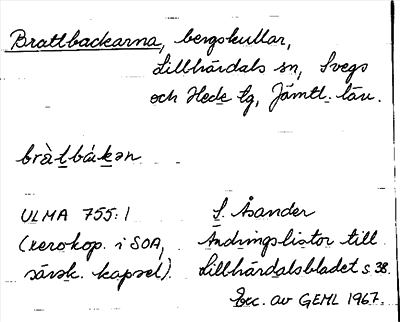 Brattbackarna, bergskullar,
Lillhärdals sn, Svegs
och Hede tg, Jämtl. län.
bràtbákən
ULMA 755:1
(xerokop. i SOA,
särsk. kapsel).
L. Åsander
Ändringslistor till
Lillhärdalsbladet s 38.
Exc. av GEML 1967.